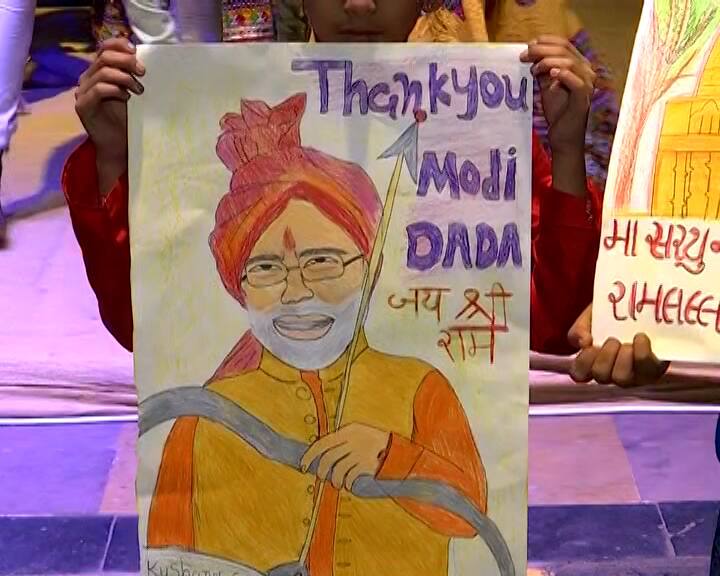 Thankyou
Modi
DADA
जय श्री
राम
મા સરયુ
રામલલ્લ